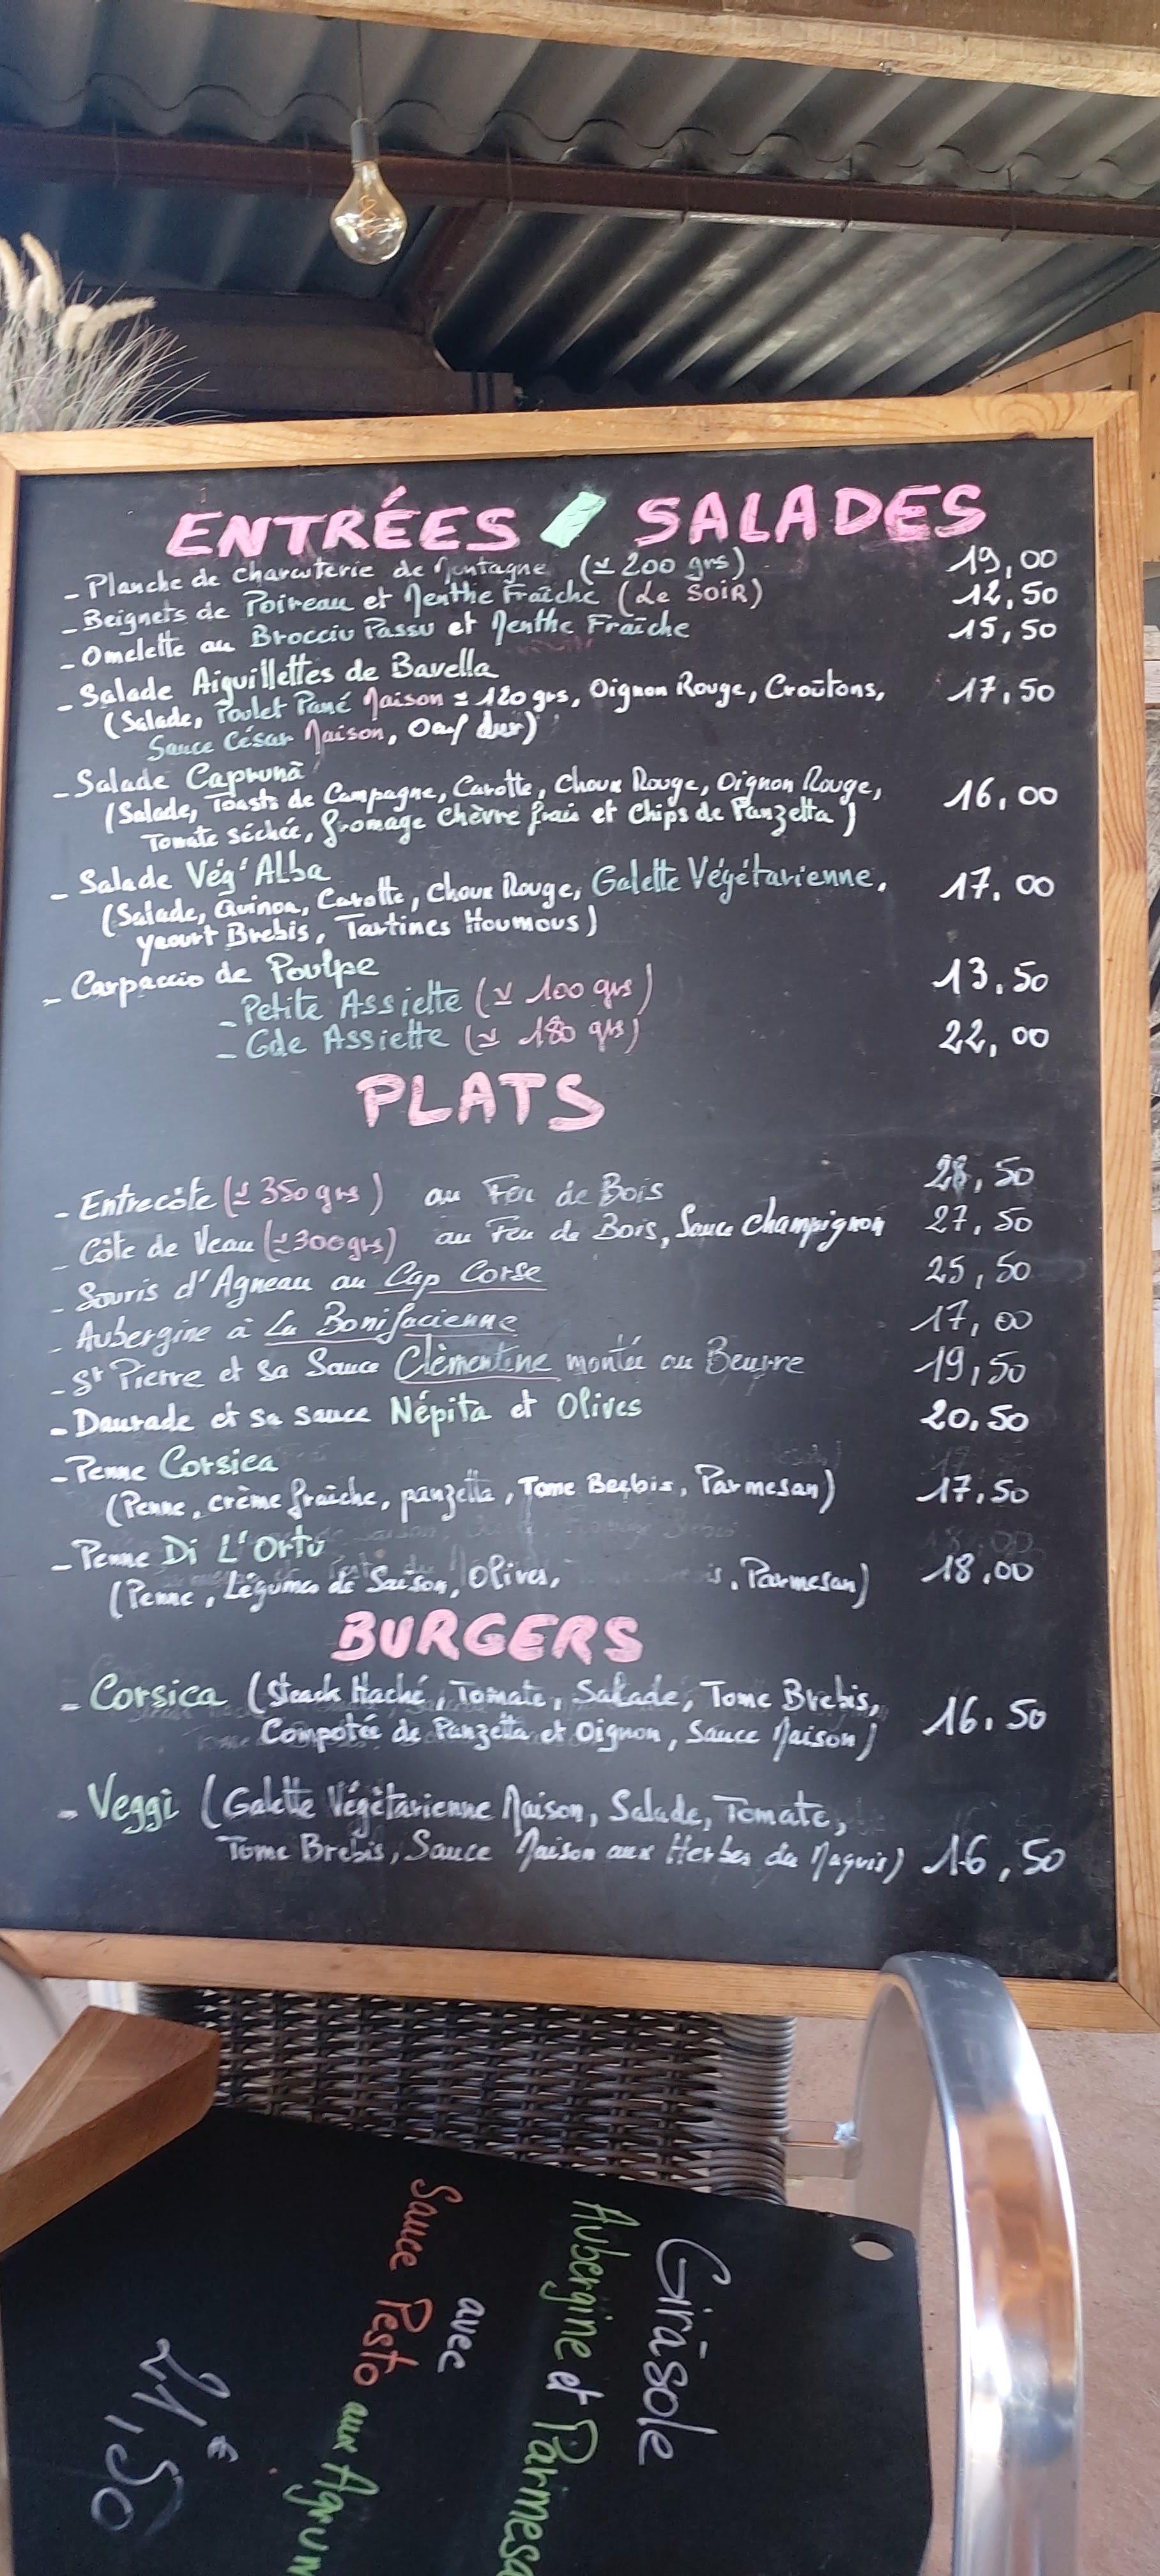 ENTRÉES / SALADES
- Planche de Charcuterie de Montagne (≃ 200 grs) 19,00
- Beignets de Poireau et Menthe Fraîche (Le SOIR) 12,50
- Omelette au Brocciu Passu et Menthe Fraîche 15,50
- Salade Aiguillettes de Bavella 17,50
(Salade, Poulet Pané Maison ≃ 120 grs, Oignon Rouge, Croûtons,
Sauce César Maison, Oeuf dur)
- Salade Capruna 16,00
(Salade, Toasts de Campagne, Carotte, Choux Rouge, Oignon Rouge,
Tomate séchée, fromage Chèvre frais et Chips de Panzetta)
- Salade Vég'Alba 17,00
(Salade, Quinoa, Carotte, Choux Rouge, Galette Végétarienne,
yaourt Brebis, Tartines Houmous)
- Carpaccio de Poulpe
- Petite Assiette (≃ 100 grs) 13,50
- Gde Assiette (≃ 180 grs) 22,00
PLATS
- Entrecôte (≃ 350 grs) au Feu de Bois 28,50
- Côte de Veau (≃ 300 grs) au Feu de Bois, Sauce Champignon 27,50
- Souris d'Agneau au Cap Corse 25,50
- Aubergine à La Bonifacienne 17,00
- St Pierre et sa Sauce Clèmentine montée au Beurre 19,50
- Daurade et sa sauce Népita et Olives 20,50
- Penne Corsica
(Penne, crème fraîche, panzetta, Tome Brebis, Parmesan) 17,50
- Penne Di L'Ortu
(Penne, Légumes de Saison, Olives, , Parmesan) 18,00
BURGERS
- Corsica (Steack Haché, Tomate, Salade, Tome Brebis,
Compotée de Panzetta et Oignon, Sauce Maison) 16,50
- Veggi (Galette Végètarienne Maison, Salade, Tomate,
Tome Brebis, Sauce Maison aux Herbes du Maquis) 16,50
Girasole
Aubergine et Parmesa
avec
Sauce Pesto aux Agrum
21,50 €